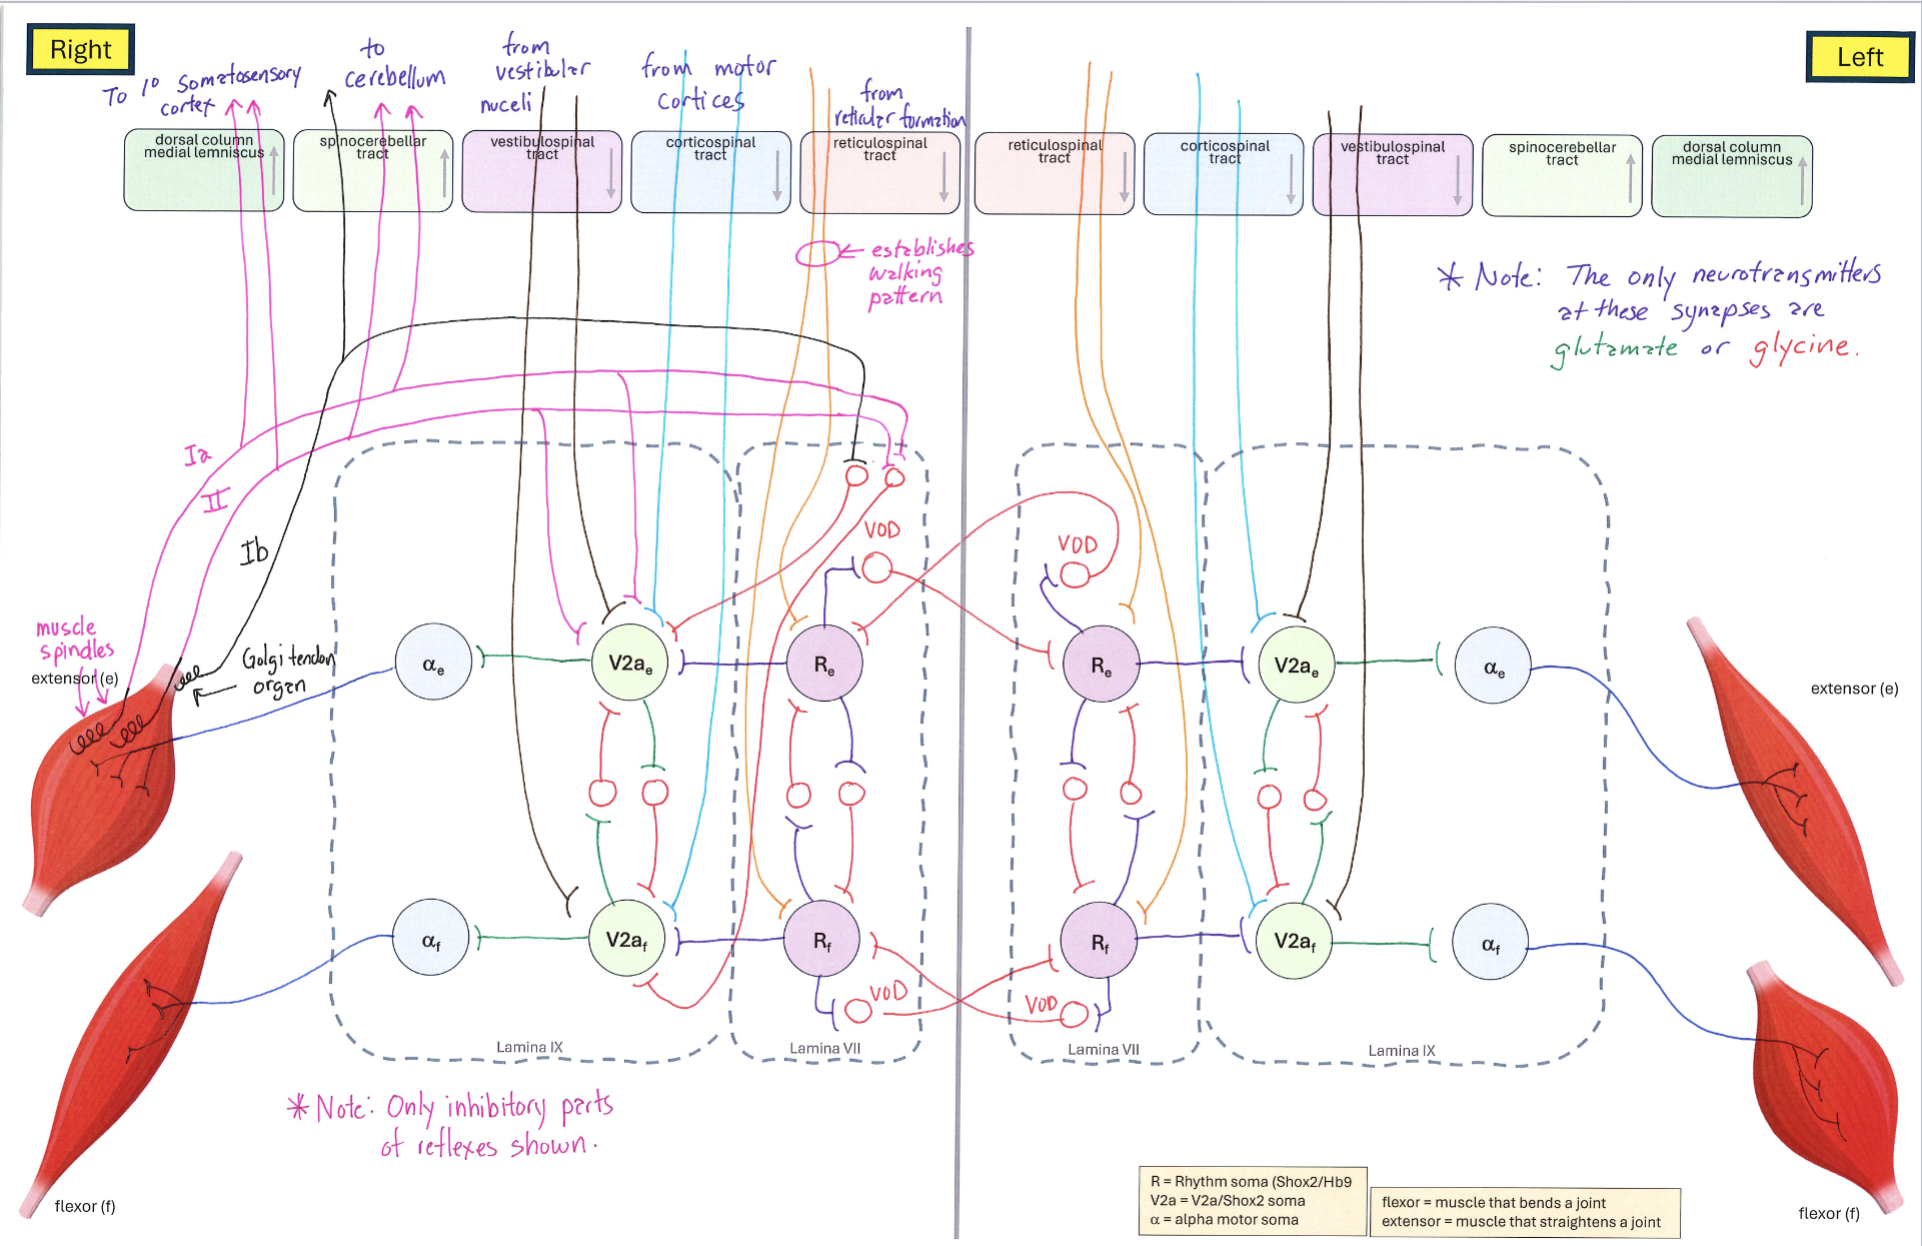 Right
Left
To 1° somatosensory
cortex
to
cerebellum
from
vestibular
nuceli
from motor
cortices
from
reticular formation
dorsal column
medial lemniscus
spinocerebellar
tract
vestibulospinal
tract
corticospinal
tract
reticulospinal
tract
reticulospinal
tract
corticospinal
tract
vestibulospinal
tract
spinocerebellar
tract
dorsal column
medial lemniscus
← establishes
walking
pattern
* Note: The only neurotransmitters
at these synapses are
glutamate or glycine.
Ia
II
Ib
muscle
spindles
extensor (e)
Golgi tendon
organ
VOD
VOD
αe
V2ae
Re
Re
V2ae
αe
extensor (e)
αf
V2af
Rf
Rf
V2af
αf
VOD
VOD
Lamina IX
Lamina VII
Lamina VII
Lamina IX
* Note: Only inhibitory parts
of reflexes shown.
flexor (f)
flexor (f)
R = Rhythm soma (Shox2/Hb9
V2a = V2a/Shox2 soma
α = alpha motor soma
flexor = muscle that bends a joint
extensor = muscle that straightens a joint